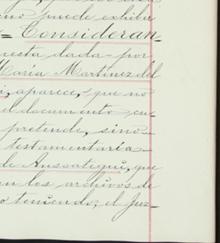 no puede exhibir
= Consideran-
uesta dada por
María Martinez del
, aparece, que no
el documento cu-
pretende, sino
testamentaria
de Aussategui, que
en los archivos de
teniendo, el Juz-